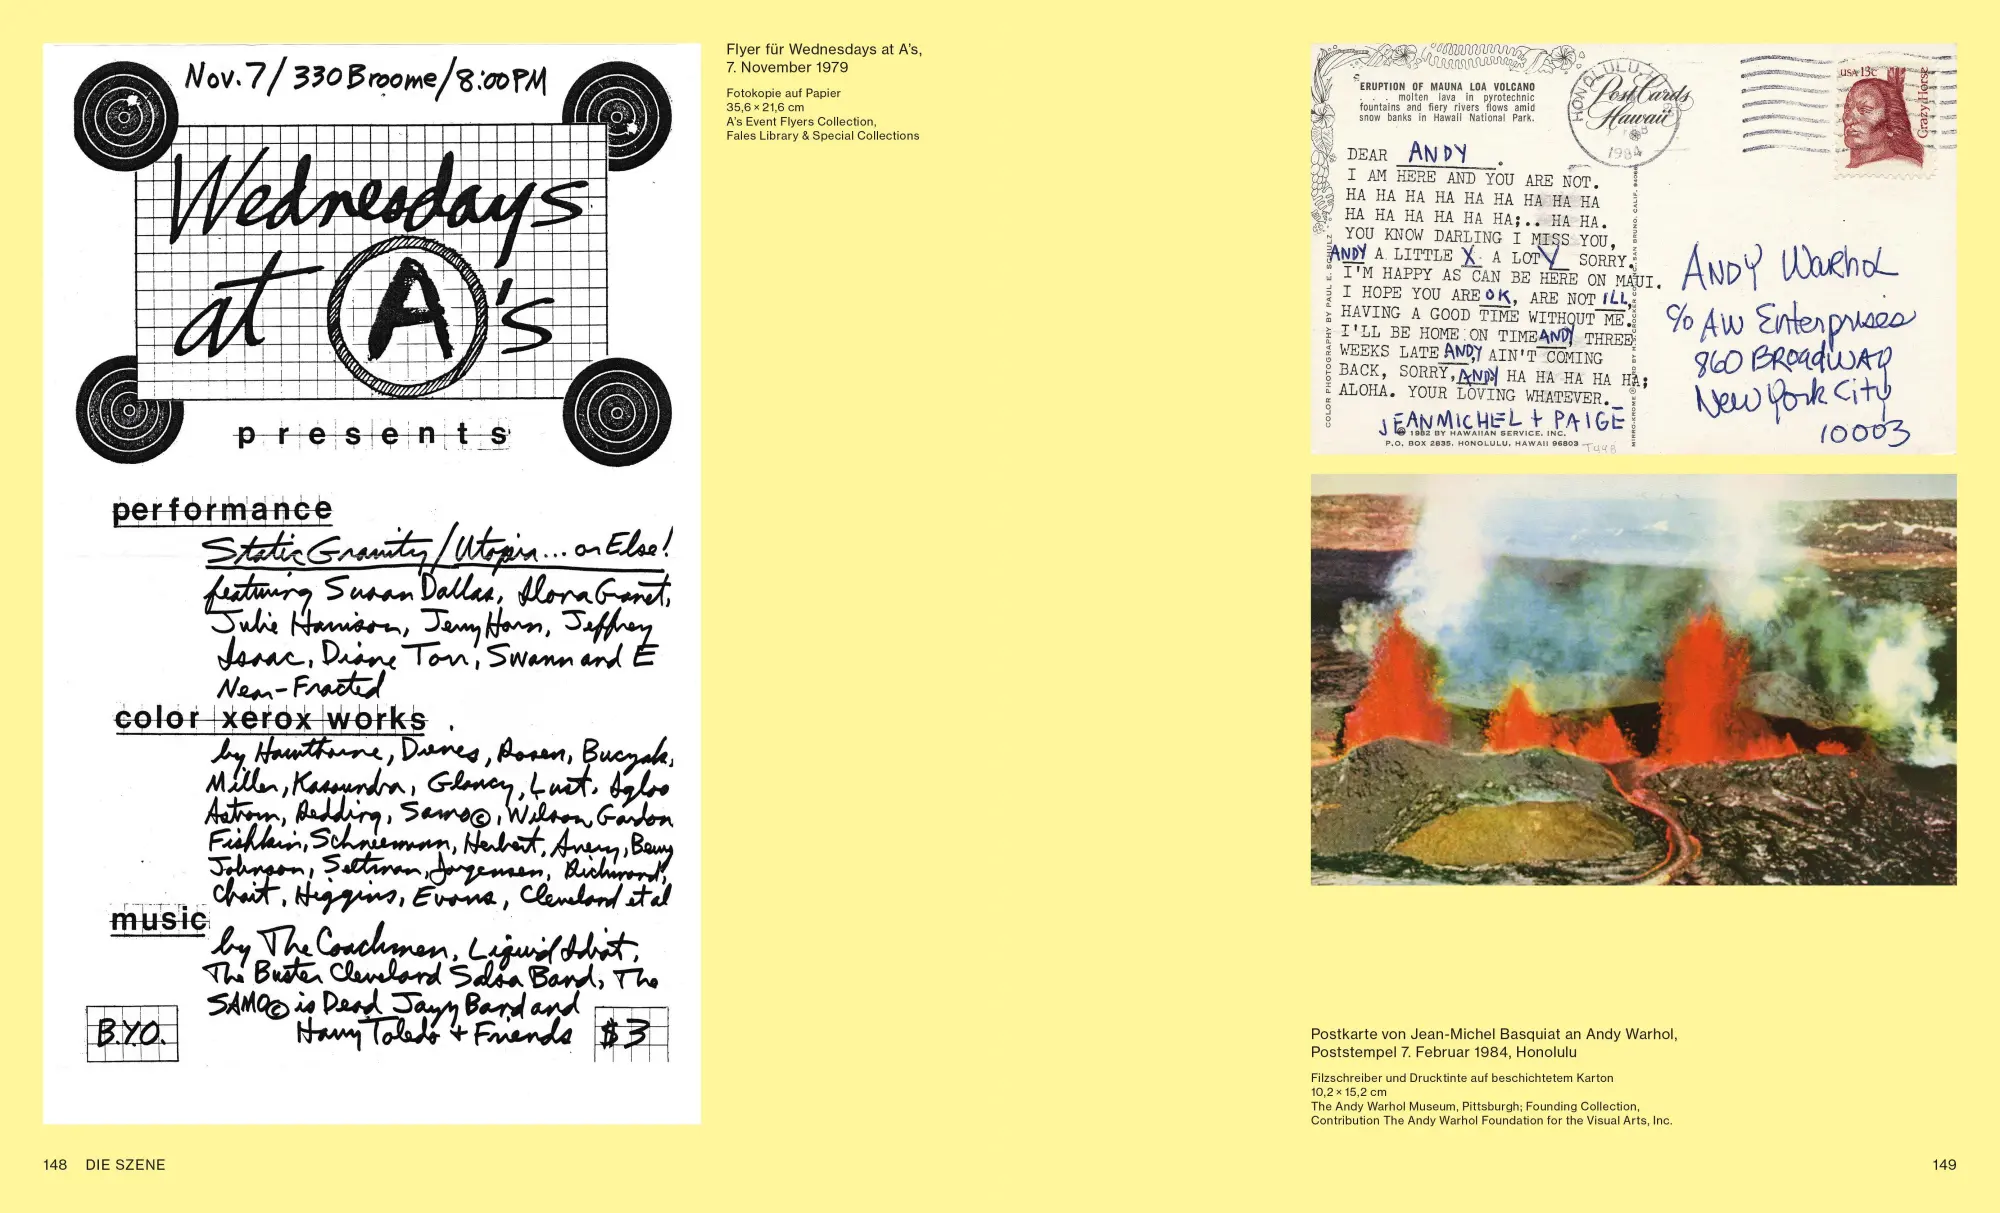 Nov. 7 / 330 Broome / 8:00 PM
Wednesdays
at A's
presents
performance
Static Gravity / Utopia... or Else!
featuring Susan Dallas, Ilona Granet,
Julie Harrison, Jerry Horn, Jeffrey
Isaac, Diane Torr, Swann and E
Near-Fracted
color xerox works
by Hawthorne, Dienes, Rosen, Buczak,
Miller, Kassundra, Glancy, Lust, Igloo
Astrom, Redding, Samo©, Wilson, Gordon
Fishkin, Schneemann, Herbert, Avery, Benny
Johnson, Seltman, Jorgensen, Richmond,
Chait, Higgins, Evans, Cleveland et al
music
by The Coachmen, Liquid Idiot,
The Buster Cleveland Salsa Band, The
SAMO© is Dead Jazz Band and
Harry Toledo + Friends
B.Y.O.
$3
Flyer für Wednesdays at A's,
7. November 1979
Fotokopie auf Papier
35,6 × 21,6 cm
A's Event Flyers Collection,
Fales Library & Special Collections
148 DIE SZENE
ERUPTION OF MAUNA LOA VOLCANO
. . . molten lava in pyrotechnic
fountains and fiery rivers flows amid
snow banks in Hawaii National Park.
Post Cards
Hawaii
HONOLULU, H
1984
USA 13c
Crazy Horse
DEAR ANDY.
I AM HERE AND YOU ARE NOT.
HA HA HA HA HA HA HA HA HA
HA HA HA HA HA HA;.. HA HA.
YOU KNOW DARLING I MISS YOU,
ANDY A LITTLE X. A LOT Y SORRY.
I'M HAPPY AS CAN BE HERE ON MAUI.
I HOPE YOU ARE OK, ARE NOT ILL,
HAVING A GOOD TIME WITHOUT ME.
I'LL BE HOME ON TIME ANDY THREE
WEEKS LATE ANDY, AIN'T COMING
BACK, SORRY, ANDY HA HA HA HA HA;
ALOHA. YOUR LOVING WHATEVER.
JEANMICHEL + PAIGE
© 1982 BY HAWAIIAN SERVICE, INC.
P.O. BOX 2835, HONOLULU, HAWAII 96803
T448
COLOR PHOTOGRAPHY BY PAUL E. SCHULZ
ANDY WARHOL
c/o AW Enterprises
860 BROADWAY
New York City
10003
Postkarte von Jean-Michel Basquiat an Andy Warhol,
Poststempel 7. Februar 1984, Honolulu
Filzschreiber und Drucktinte auf beschichtetem Karton
10,2 × 15,2 cm
The Andy Warhol Museum, Pittsburgh; Founding Collection,
Contribution The Andy Warhol Foundation for the Visual Arts, Inc.
149